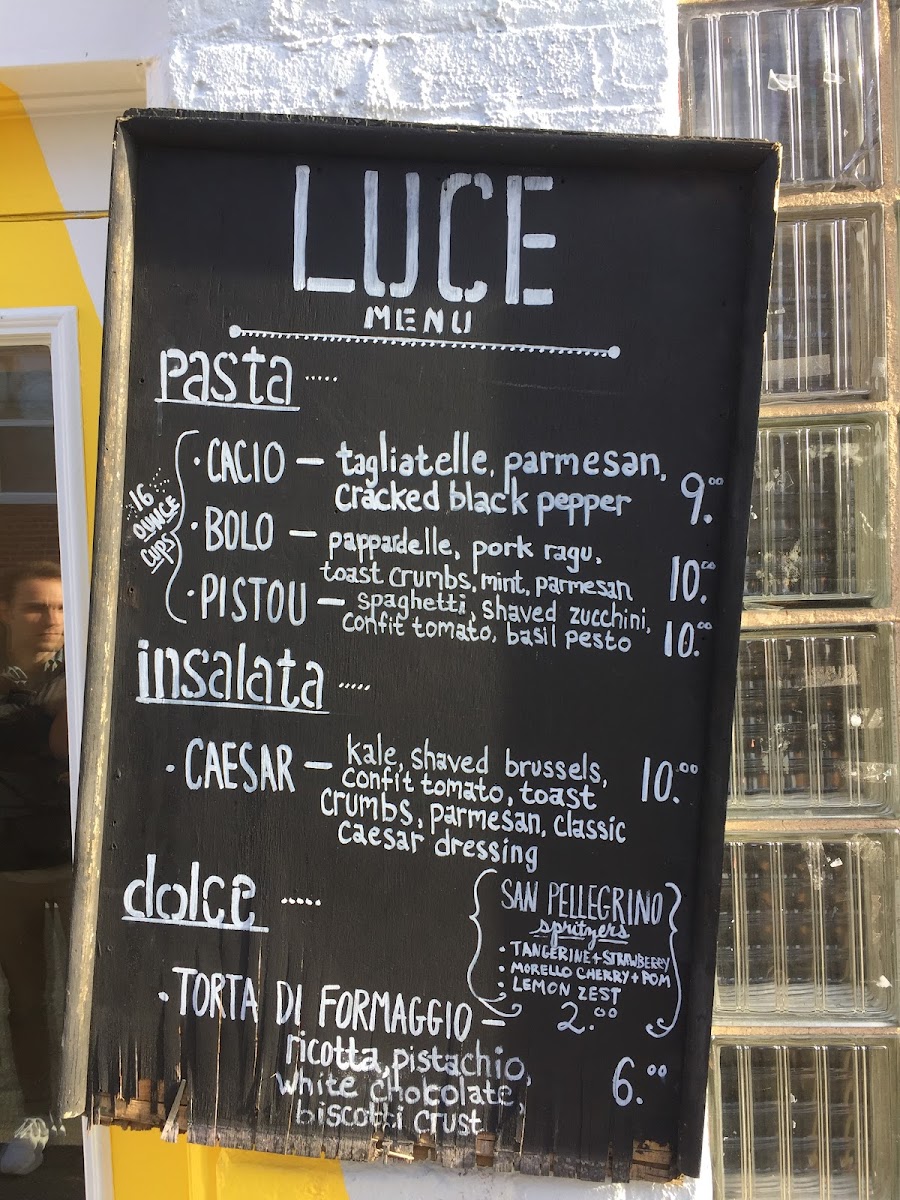 LUCE
MENU
pasta .....
16
OUNCE
CUPS
· CACIO — tagliatelle, parmesan,
cracked black pepper 9.00
· BOLO — pappardelle, pork ragu,
toast crumbs, mint, parmesan 10.00
· PISTOU — spaghetti, shaved zucchini,
confit tomato, basil pesto 10.00
insalata .....
· CAESAR — kale, shaved brussels, 10.00
confit tomato, toast
crumbs, parmesan, classic
caesar dressing
dolce .....
SAN PELLEGRINO
spritzers
· TANGERINE + STRAWBERRY
· MORELLO CHERRY + POM
· LEMON ZEST
2.00
· TORTA DI FORMAGGIO —
ricotta, pistachio,
white chocolate, 6.00
biscotti crust